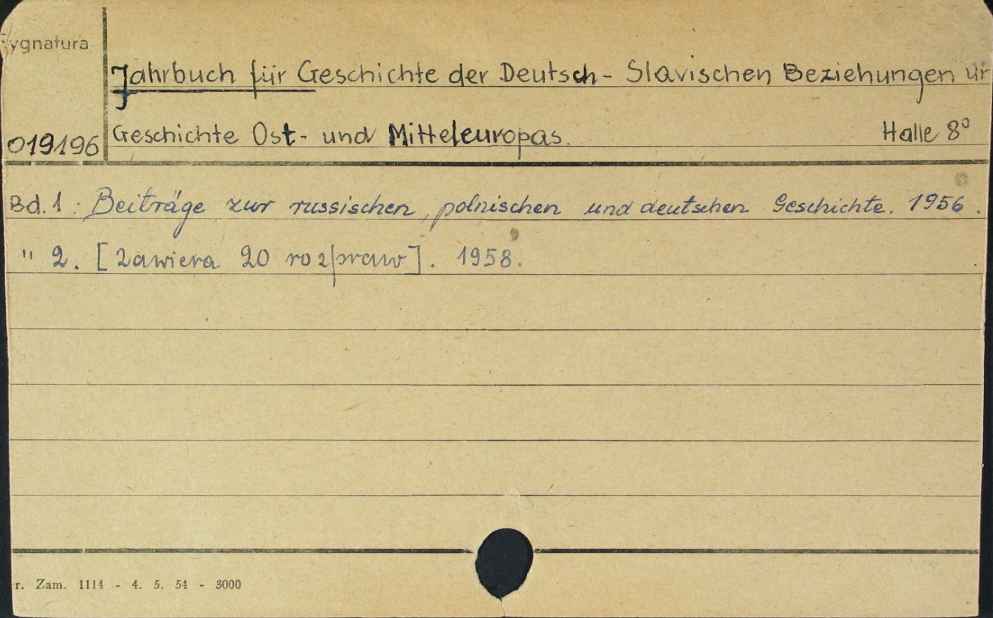 ygnatura
Jahrbuch für Geschichte der Deutsch- Slavischen Beziehungen ur
019196 Geschichte Ost- und Mitteleuropas. Halle 8°
Bd. 1 : Beiträge zur russischen, polnischen und deutschen Geschichte. 1956.
" 2. [Zawiera 20 rozpraw]. 1958.
r. Zam. 1114 - 4. 5. 54 - 3000